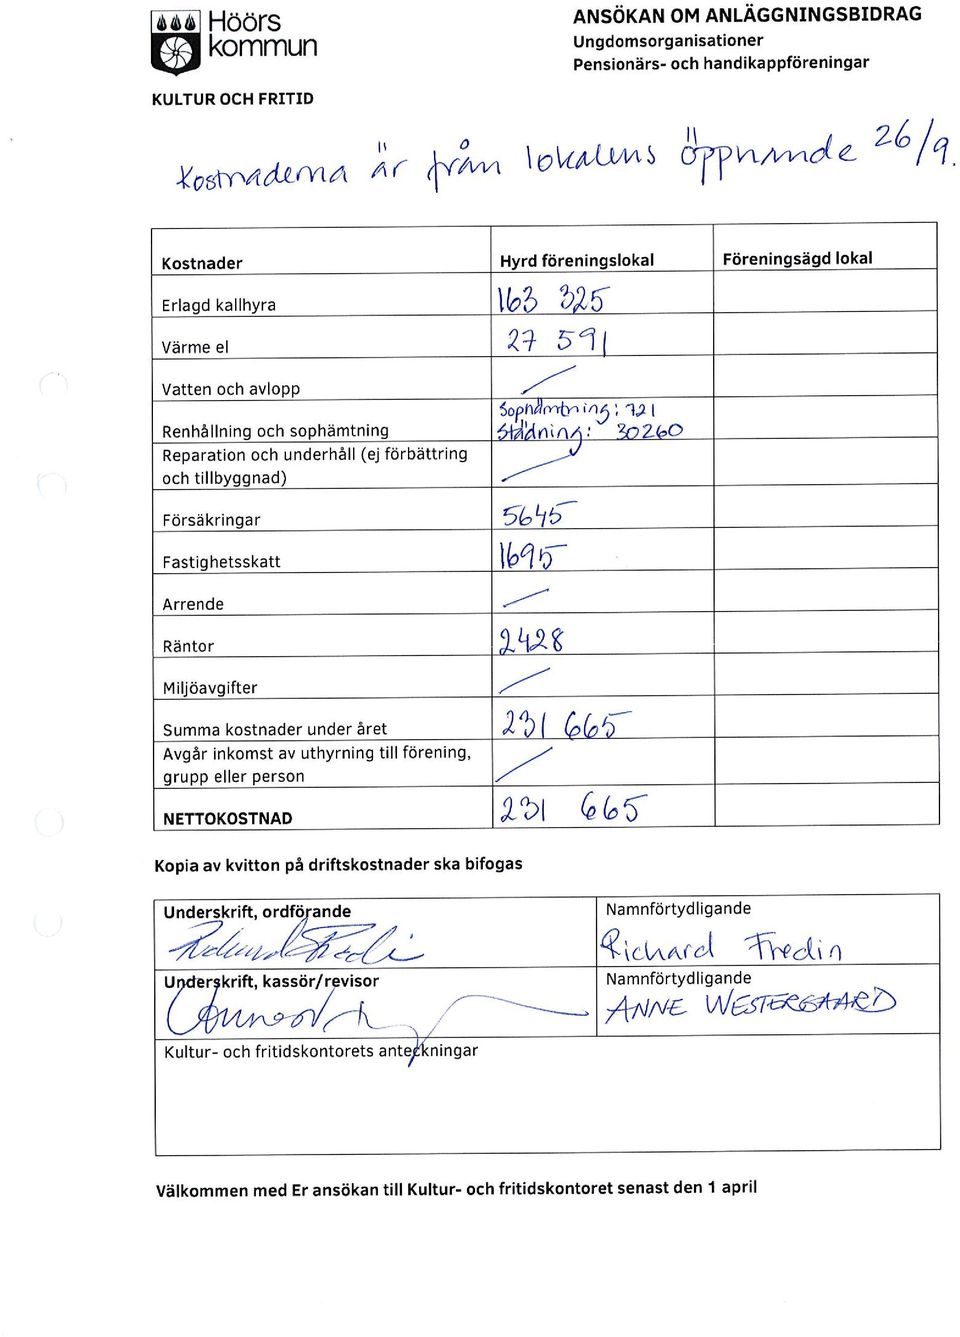 Höörs
kommun
KULTUR OCH FRITID
ANSÖKAN OM ANLÄGGNINGSBIDRAG
Ungdomsorganisationer
Pensionärs- och handikappföreningar
Kostnaderna är från lokalens öppnande 26/9.
Kostnader Hyrd föreningslokal Föreningsägd lokal
Erlagd kallhyra 163 325
Värme el 27 591
Vatten och avlopp
Sophämtning: 721
Renhållning och sophämtning Städning: 30260
Reparation och underhåll (ej förbättring
och tillbyggnad)
Försäkringar 5645
Fastighetsskatt 1695
Arrende
Räntor 2428
Miljöavgifter
Summa kostnader under året 231 665
Avgår inkomst av uthyrning till förening,
grupp eller person
NETTOKOSTNAD 231 665
Kopia av kvitton på driftskostnader ska bifogas
Underskrift, ordförande Namnförtydligande
Richard Fredin
Underskrift, kassör/revisor Namnförtydligande
ANNE WESTERGAARD
Kultur- och fritidskontorets anteckningar
Välkommen med Er ansökan till Kultur- och fritidskontoret senast den 1 april